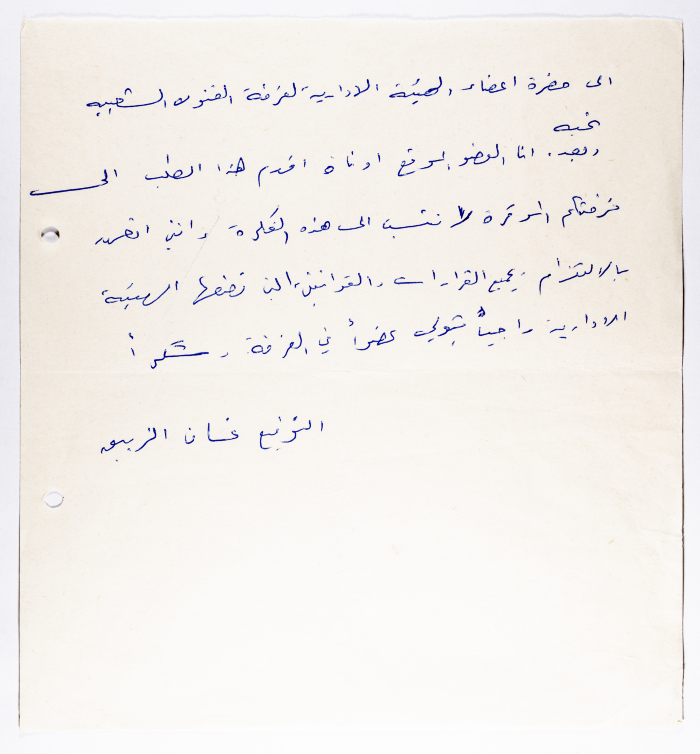 الى حضرة اعضاء الهيئة الادارية لفرقة الفنون الشعبيه
تحيه
وبعد. انا العضو الموقع ادناه اقدم هذا الطلب الى
فرقتكم الموقرة لانتسب الى هذه الفكرة وانني اتعهد
بالالتزام بجميع القرارات والقوانين التي تضعها الهيئة
الادارية راجياً قبولي عضواً في الفرقة وشكراً
التوقيع غسان